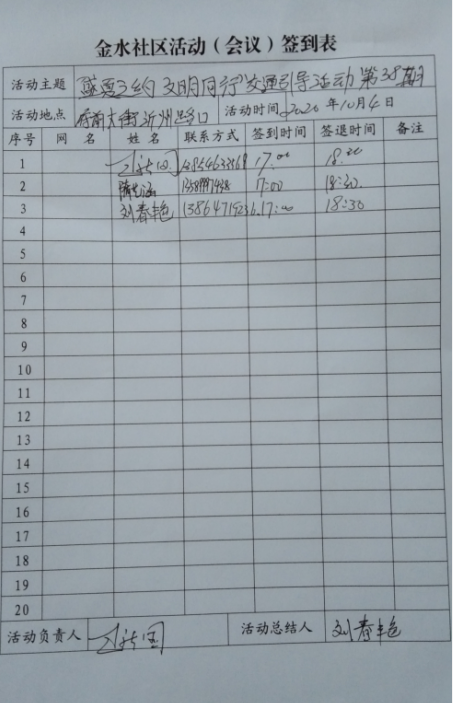 金水社区活动(会议)签到表
活动主题 文明同行"交通引导活动第38期
活动地点 府南大街沂州路口 活动时间 2020年10月4日
序号 网名 姓名 联系方式 签到时间 签退时间 备注
1 17:00
2 17:00 18:30
3 刘春艳 17:00 18:30
4
5
6
7
8
9
10
11
12
13
14
15
16
17
18
19
20
活动负责人 活动总结人 刘春艳